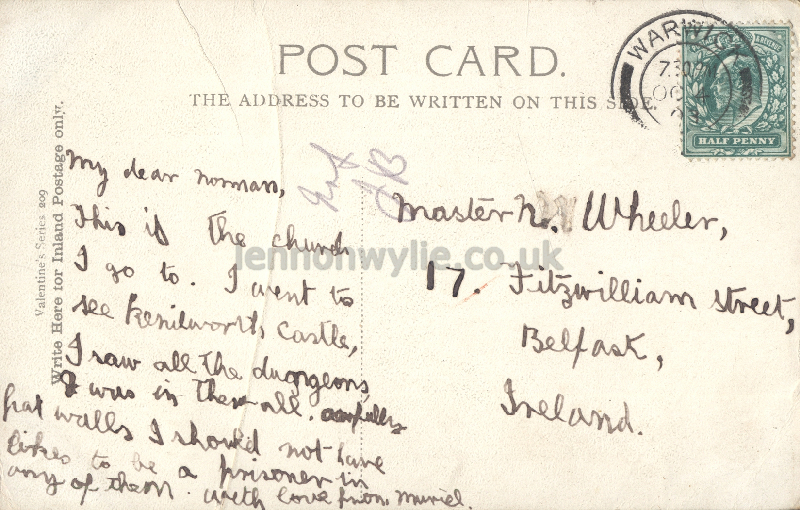 POST CARD.
THE ADDRESS TO BE WRITTEN ON THIS SIDE.
WARWICK
7.30PM
OC
HALF PENNY
Valentine's Series 209
Write Here for Inland Postage only.
My dear Norman,
This is the church
I go to. I went to
see Kenilworth Castle,
I saw all the dungeons,
I was in them all. awfully
fat walls I should not have
likes to be a prisoner in
any of them. with love from Muriel.
Master N. Wheeler,
17. Fitzwilliam Street,
Belfast,
Ireland.
lennonwylie.co.uk